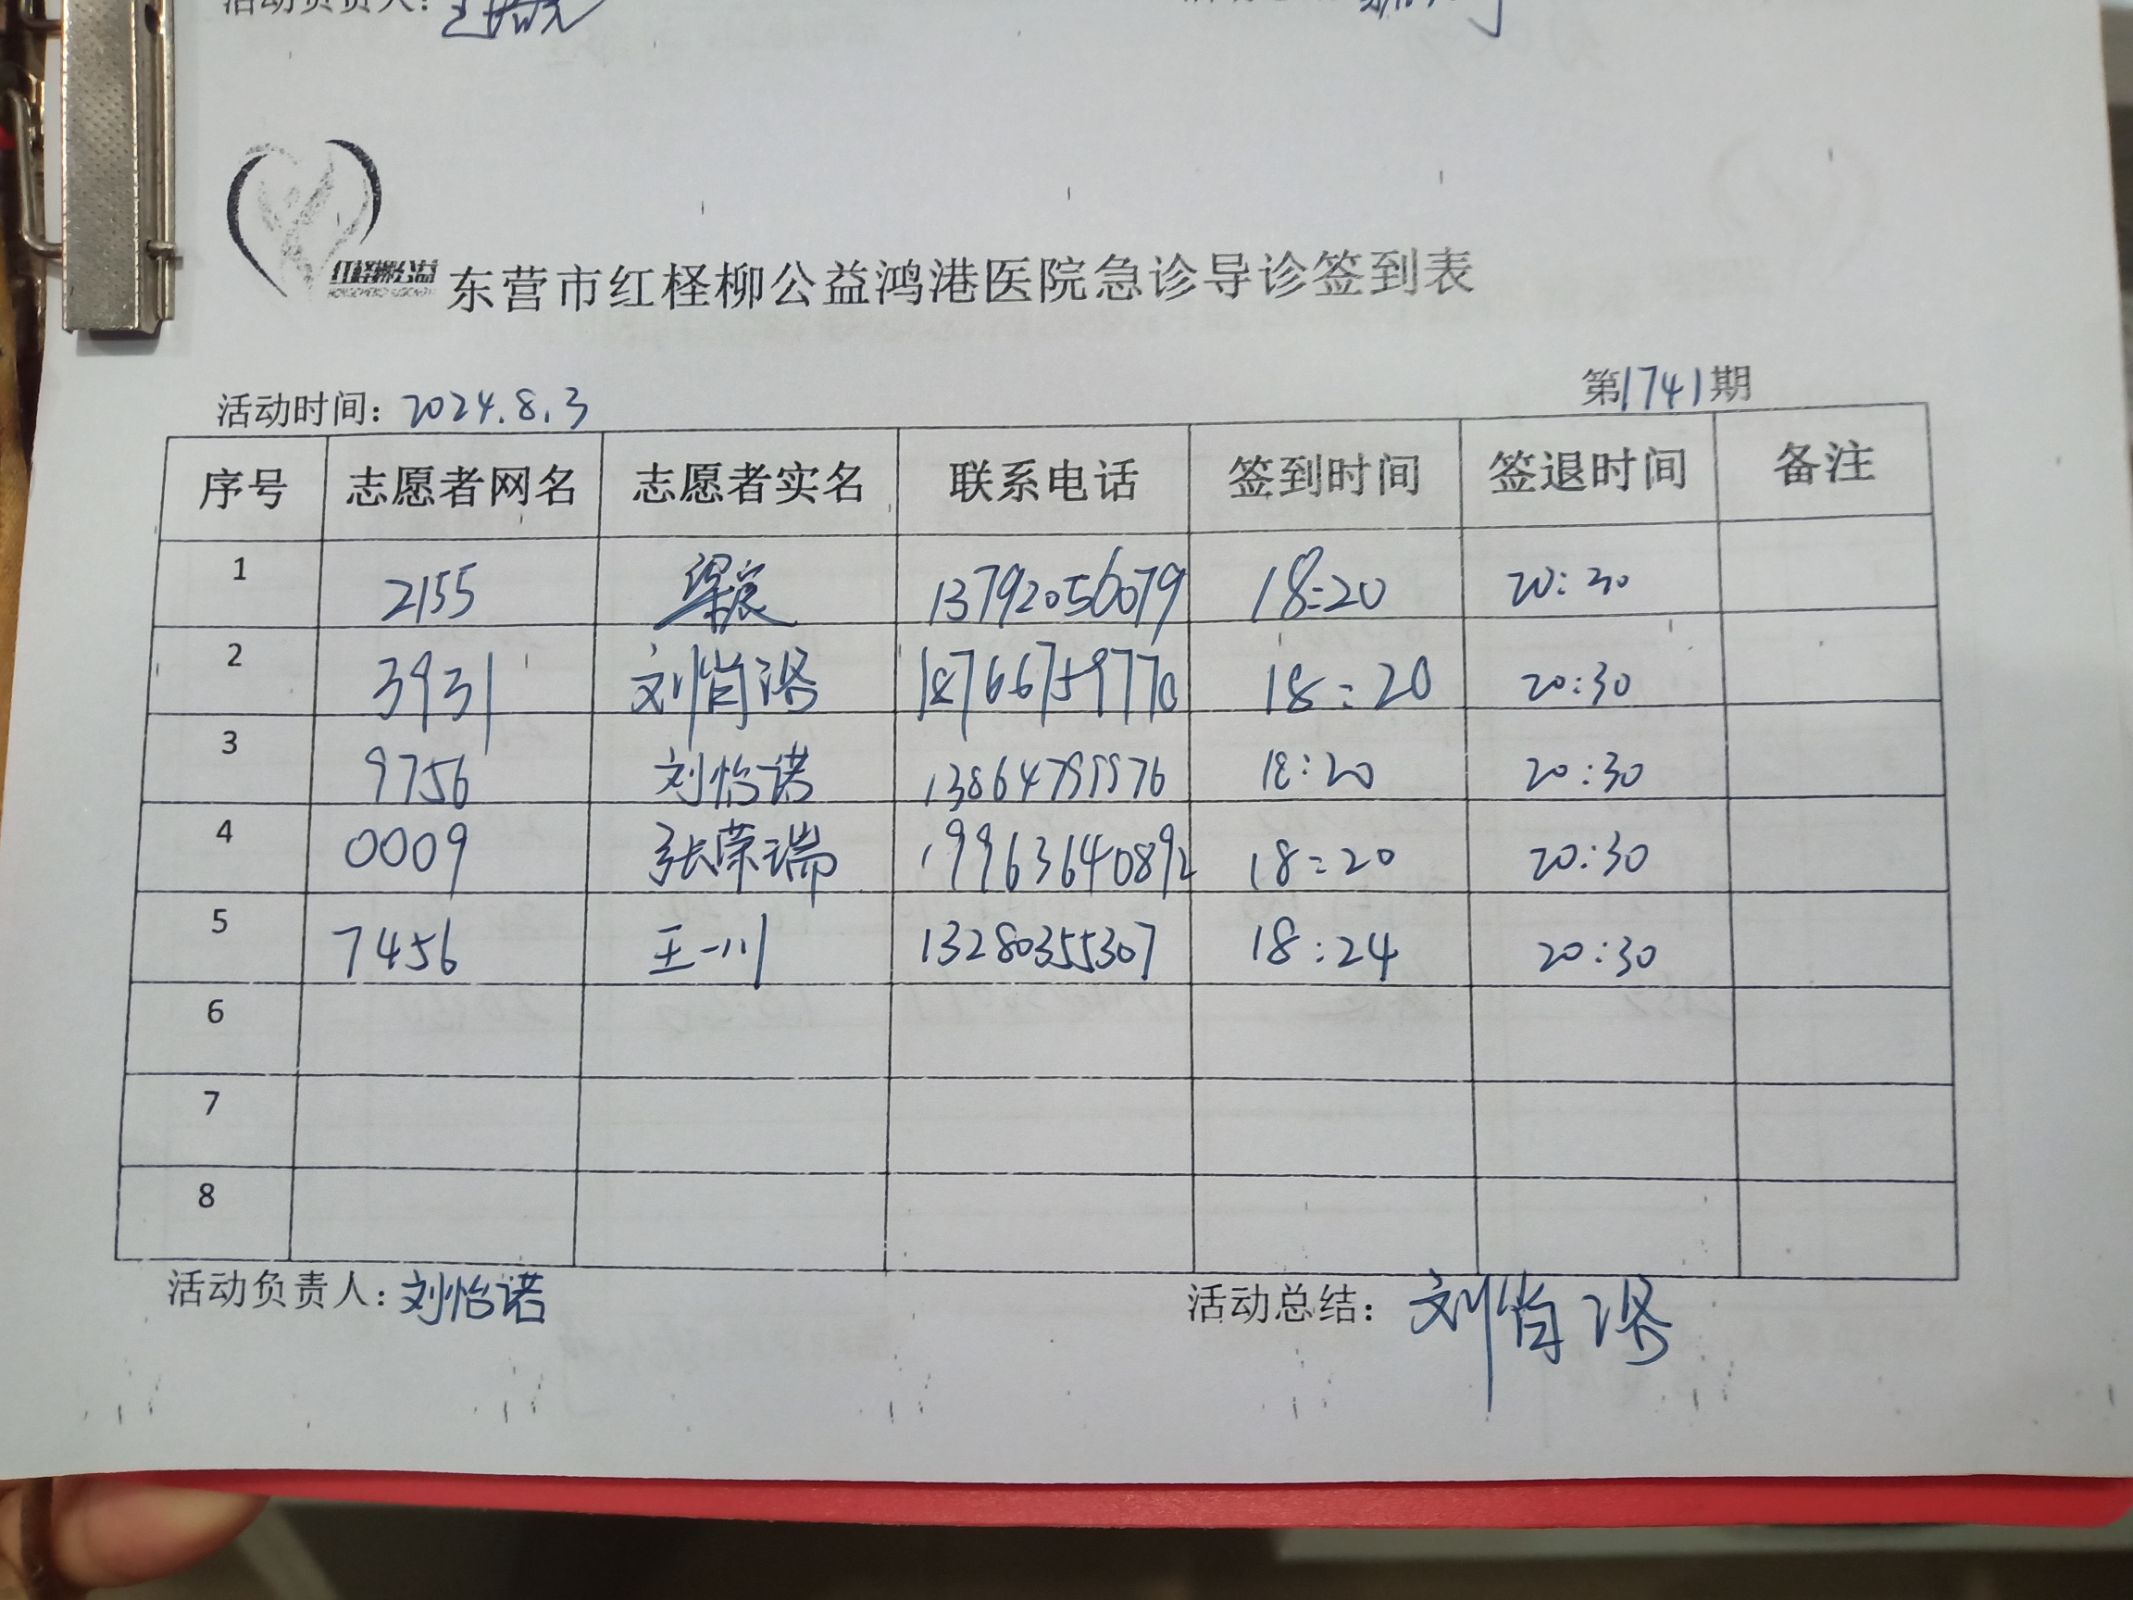 活动负责人:
红柽柳公益
东营市红柽柳公益鸿港医院急诊导诊签到表
活动时间: 2024.8.3 第1741期
序号 志愿者网名 志愿者实名 联系电话 签到时间 签退时间 备注
1 2155 13792056079 18:20 20:30
2 3931 刘肖 18766759770 18:20 20:30
3 9756 刘怡诺 18:20 20:30
4 0009 张荣瑞 19963640892 18:20 20:30
5 7456 王一川 13280355307 18:24 20:30
6
7
8
活动负责人: 刘怡诺 活动总结: 刘肖